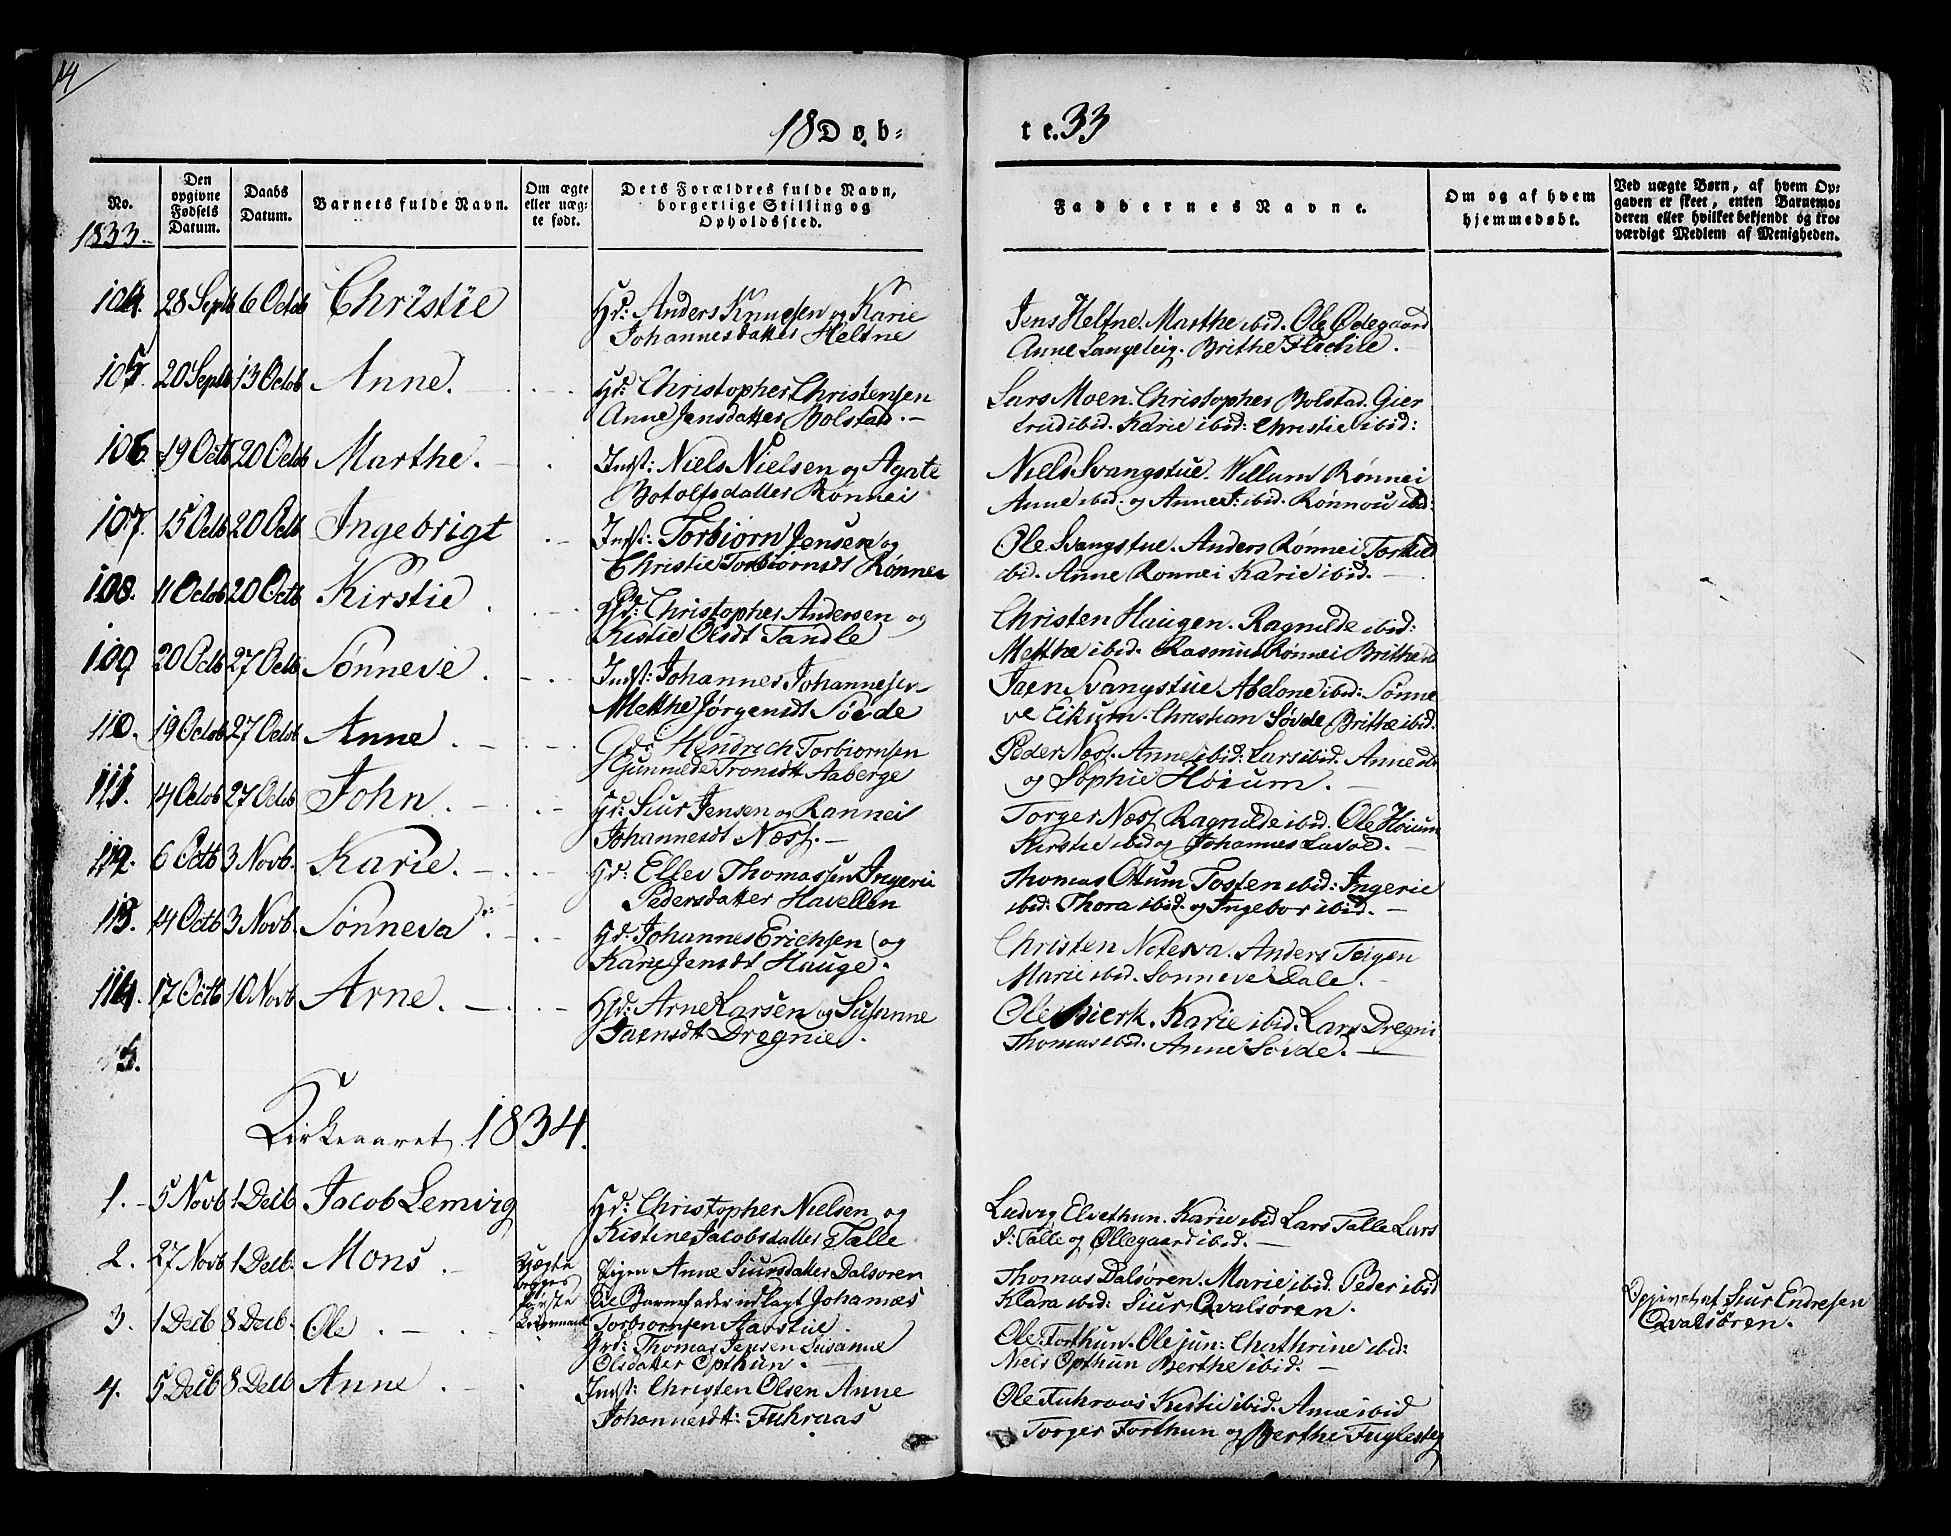 14
18 Døb=
te. 33
No.
1833.
Den opgivne Fødsels Datum.
Daabs Datum.
Barnets fulde Navn.
Om ægte eller uægte født.
Dets Forældres fulde Navn, borgerlige Stilling og Opholdsted.
Faddernes Navne.
Om og af hvem hjemmedøbt.
Ved uægte Børn, af hvem Opgaven er skeet, enten Barnemoderen eller hvilket bekjendt og troværdigt Medlem af Menigheden.
104. 28 Septb 6 Octob Christie Gd: Anders Knudsen og Karie
Johannesdatter Heltne
Jens Heltne. Marthe ibid. Ole Ødegaard
Anne Langeteig. Brithe
105. 20 Septb 13 Octob Anne. Gd: Christopher Christensen
Anne Jensdatter Bolstad.
Lars Moen. Christopher Bolstad. Gier
trud ibid. Karie ibid: Christie ibid:
106. 19 Octb 20 Octob Marthe. Indst: Niels Nielsen og Agate
Botolfsdatter Rønnei
Niels Svangstue. Willum Rønnei
Anne ibid. og Anne J: ibid. Rønnou ibid:
107. 15 Octb 20 Octb Ingebrigt Indst: Torbiørn Jensen og
Christie Torbiørnsdt Rønnei
Ole Svangstue. Anders Rønnei Torkild
ibid. Anne Rønnei Karie ibid.
108. 11 Octob 20 Octb Kirstie Gd: Christopher Andersen og
Kistie Olsdt Tandle
Christen Haugen. Ragnilde ibid:
Metthe ibid. Rasmus Rønnei Brithe ib
109 20 Octb 27 Octb Sønneve Indst: Johannes Johannesen
Metthe Jørgensdt Søvde
Jaen Svangstue Abelone ibid: Sønne
ve Eikum. Christian Søvde Brithe ibid:
110. 19 Octob 27 Octob Anne Gd: Hendrich Torbiørnsen
Gunnilde Tronsdt Aaberge
Peder Næss. Anne ibid: Lars ibid. Anne ib
og Sophie Høium.
111. 14 Octob 27 Octb John. Gd: Siur Jensen og Rannei
Johannesdt Næss.
Torger Næss Ragnilde ibid. Ole Høium
Kirstie ibid og Johannes Lavold.
112. 6 Octb 3 Novb. Karie. Gd: Ellev Thomassen Ingerie
Pedersdatter Havellen
Thomas Ottum Tosten ibid: Ingerie
ibid: Thora ibid. og Ingebor ibid.
113. 14 Octb 3 Novb. Sønneva Gd: Johannes Erichsen og
Karie Jensdt Hauge.
Christen Noteva. Anders Teigen
Marie ibid. Sønneve Dale.
114. 17 Octb 10 Novb Arne. Gd: Arne Larsen og Susanne
Jaensdt Dregnie.
Ole Bierk. Karie ibid. Lars Dregni
Thomas ibid. Anne Søvde.
Kirkeaaret 1834.
1. 5 Novb 1 Decb Jacob Lemvig Gd: Christopher Nielsen og
Kistine Jacobsdatter Talle
Ludvig Elvethun. Karie ibid Lars Talle Lars
S: Talle og Ollegaard ibid.
2. 27 Novb 1 Decb. Mons Uægte begges første Leiermaal
Pigen Anne Siursdatter Dalsøren
til Barnefader udlagt Johannes
Torbiørnsen Aarstie.
Thomas Dalsøren. Marie ibid. Peder ibid
Klara ibid: Siur Qvalsøren.
Opgivet af Siur Endresen
Qvalsøren.
3. 1 Decb 8 Decb. Ole Gd: Thomas Jensen Susanne
Olsdatter Opthun.
Ole Forthun. Ole jun: Chathrine ibid:
Niels Opthun Berthe ibid:
4. 5 Decb 8 Decb Anne Indst: Christen Olsen Anne
Johannesdt: Fuhraas
Ole Fuhraas Kistie ibid. Anne ibid
Torger Forthun og Berthe Fuglesteg